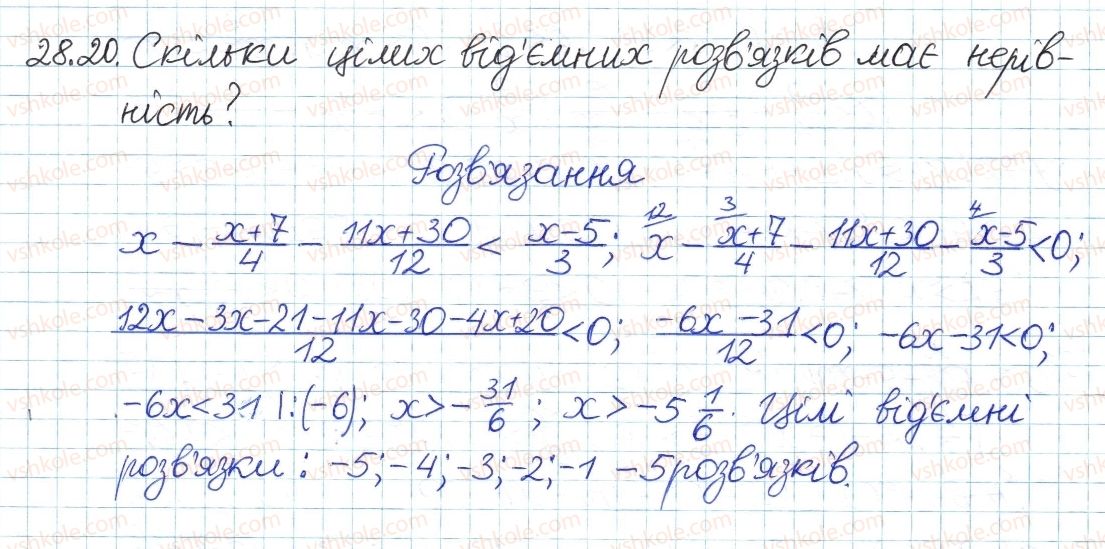 28.20. Скільки цілих від'ємних розв'язків має нерів-
ність?
Розв'язання
x − (x+7)/4 − (11x+30)/12 < (x−5)/3; 12/x − 3/(x+7)/4 − (11x+30)/12 − 4/(x−5)/3 < 0;
(12x−3x−21−11x−30−4x+20)/12 < 0; (−6x −31)/12 < 0; −6x−31<0;
−6x<31 |:(−6); x>−31/6; x > −5 1/6. Цілі від'ємні
розв'язки: −5; −4; −3; −2; −1 − 5 розв'язків.